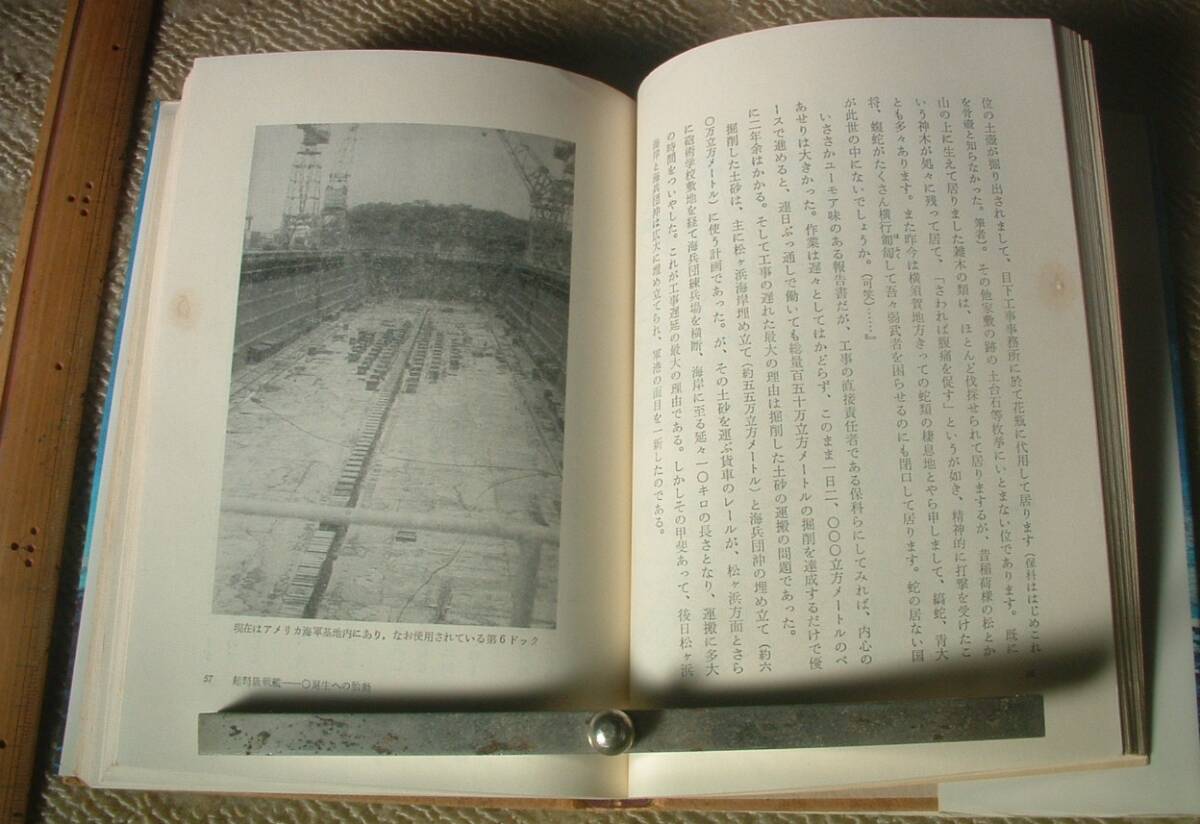 位の土壺が掘り出されまして、目下工事事務所に於て花瓶に代用して居ります（保科ははじめこれ
を骨壺と知らなかった。筆者）。その他家敷の跡の土台石等枚挙にいとまない位であります。既に
山の上に生えて居りました雑木の類は、ほとんど伐採せられて居りまするが、昔稲荷様の松とか
いう神木が処々に残って居て、「さわれば腹痛を促す」というが如き、精神的に打撃を受けたこ
とも多々あります。また昨今は横須賀地方きっての蛇類の棲息地とやら申しまして、縞蛇、青大
将、蝮蛇がたくさん横行匍匐して吾々弱武者を困らせるのにも閉口して居ります。蛇の居ない国
が此世の中にないでしょうか。（可笑）……』
いささかユーモア味のある報告書だが、工事の直接責任者である保科らにしてみれば、内心の
あせりは大きかった。作業は遅々としてはかどらず、このまま一日二、〇〇〇立方メートルのペ
ースで進めると、連日ぶっ通しで働いても総量百五十万立方メートルの掘削を達成するだけで優
に二年余はかかる。そして工事の遅れた最大の理由は掘削した土砂の運搬の問題であった。
掘削した土砂は、主に松ヶ浜海岸埋め立て（約五五万立方メートル）と海兵団沖の埋め立て（約六
〇万立方メートル）に使う計画であった。が、その土砂を運ぶ貨車のレールが、松ヶ浜方面とさら
に砲術学校敷地を経て海兵団練兵場を横断、海岸に至る延々一〇キロの長さとなり、運搬に多大
の時間をついやした。これが工事遅延の最大の理由である。しかしその甲斐あって、後日松ヶ浜
海岸と海兵団沖は広大に埋め立てられ、軍港の面目を一新したのである。
現在はアメリカ海軍基地内にあり，なお使用されている第6ドック
57